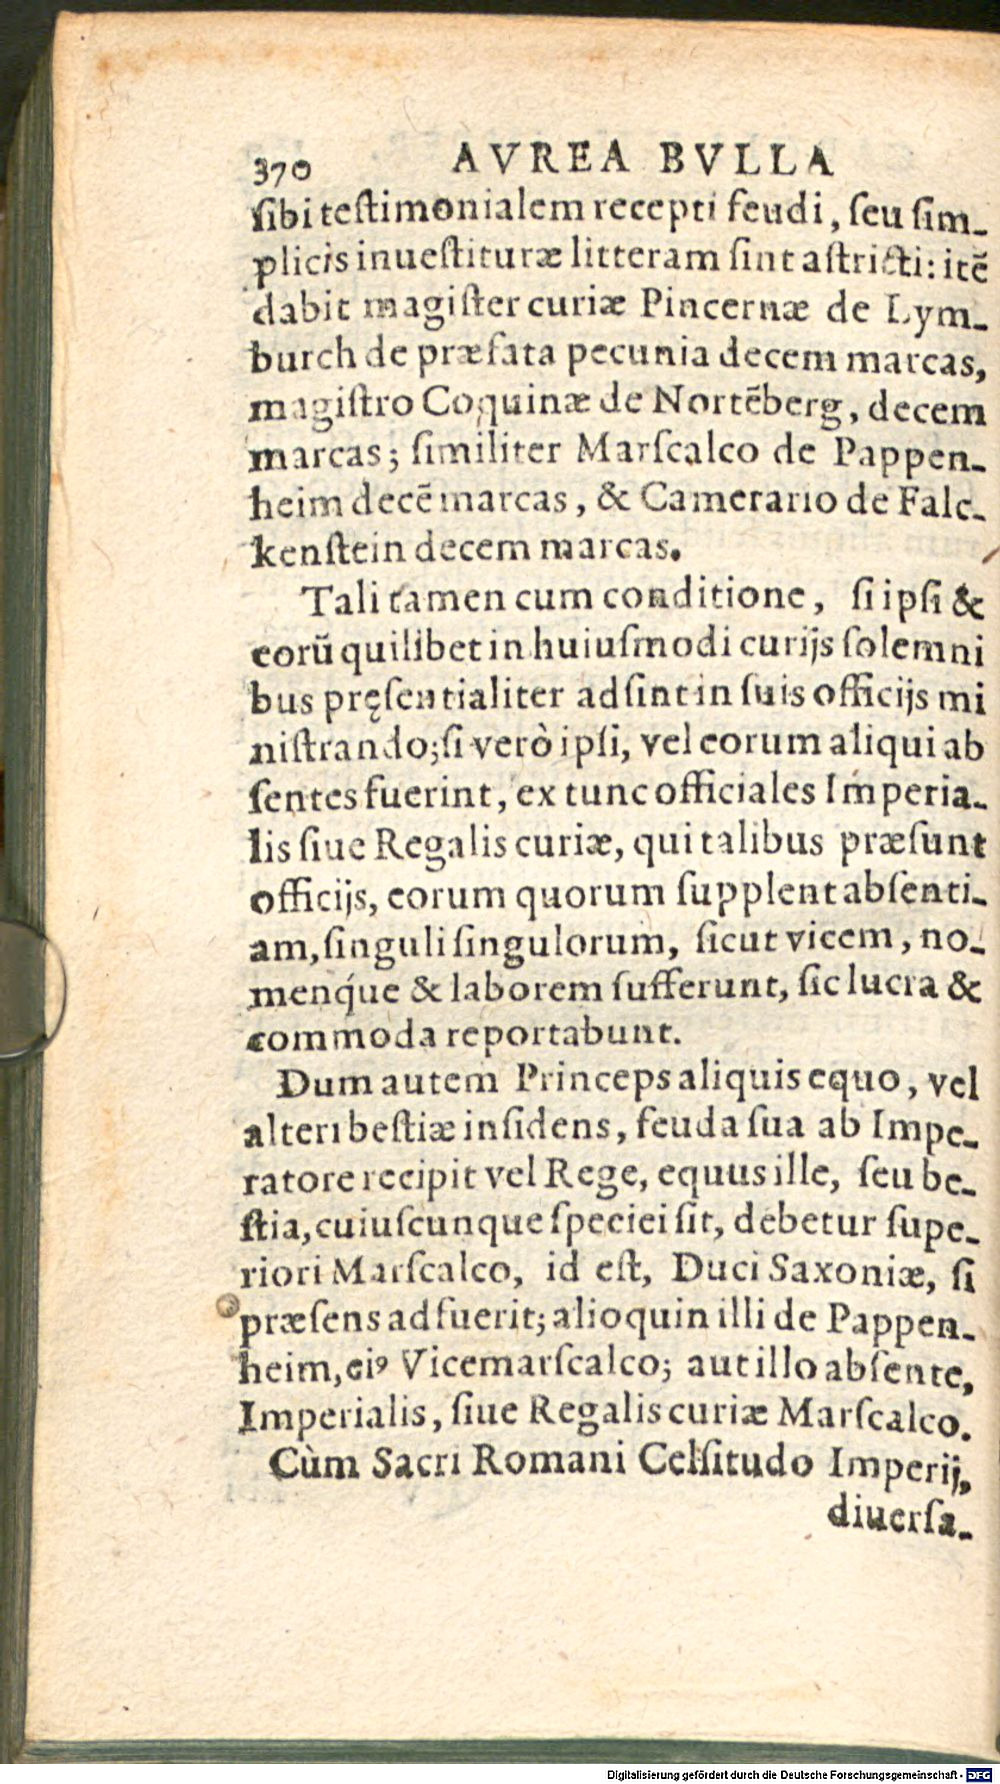 370 AVREA BVLLA
ſibi teſtimonialem recepti feudi, ſeu ſim-
plicis inueſtituræ litteram ſint aſtricti: itē
dabit magiſter curiæ Pincernæ de Lym-
burch de præfata pecunia decem marcas,
magiſtro Coquinæ de Nortēberg, decem
marcas; ſimiliter Marſcalco de Pappen-
heim decē marcas, & Camerario de Falc-
kenſtein decem marcas.
Tali tamen cum conditione, ſi ipſi &
eorū quilibet in huiuſmodi curijs ſolemni
bus pręſentialiter adſint in ſuis officijs mi
niſtrando; ſi verò ipſi, vel eorum aliqui ab
ſentes fuerint, ex tunc officiales Imperia-
lis ſiue Regalis curiæ, qui talibus præſunt
officijs, eorum quorum ſupplent abſenti-
am, ſinguli ſingulorum, ſicut vicem, no-
menq́ue & laborem ſufferunt, ſic lucra &
commoda reportabunt.
Dum autem Princeps aliquis equo, vel
alteri beſtiæ inſidens, feuda ſua ab Impe-
ratore recipit vel Rege, equus ille, ſeu be-
ſtia, cuiuſcunque ſpeciei ſit, debetur ſupe-
riori Marſcalco, id eſt, Duci Saxoniæ, ſi
præſens adfuerit; alioquin illi de Pappen-
heim, eiꝰ Vicemarſcalco; aut illo abſente,
Imperialis, ſiue Regalis curiæ Marſcalco.
Cùm Sacri Romani Celſitudo Imperij,
diuerſa-
Digitalisierung gefördert durch die Deutsche Forschungsgemeinschaft - DFG